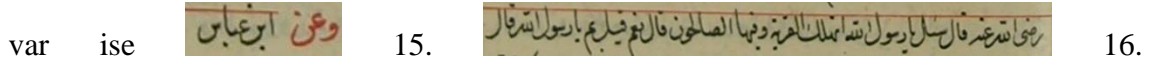 var ise وعن ابن عباس 15. رضى الله عنه قال سئل يا رسول الله اتهلك القرية وفيها الصالحون قال نعم قيل بم يا رسول الله قال 16.